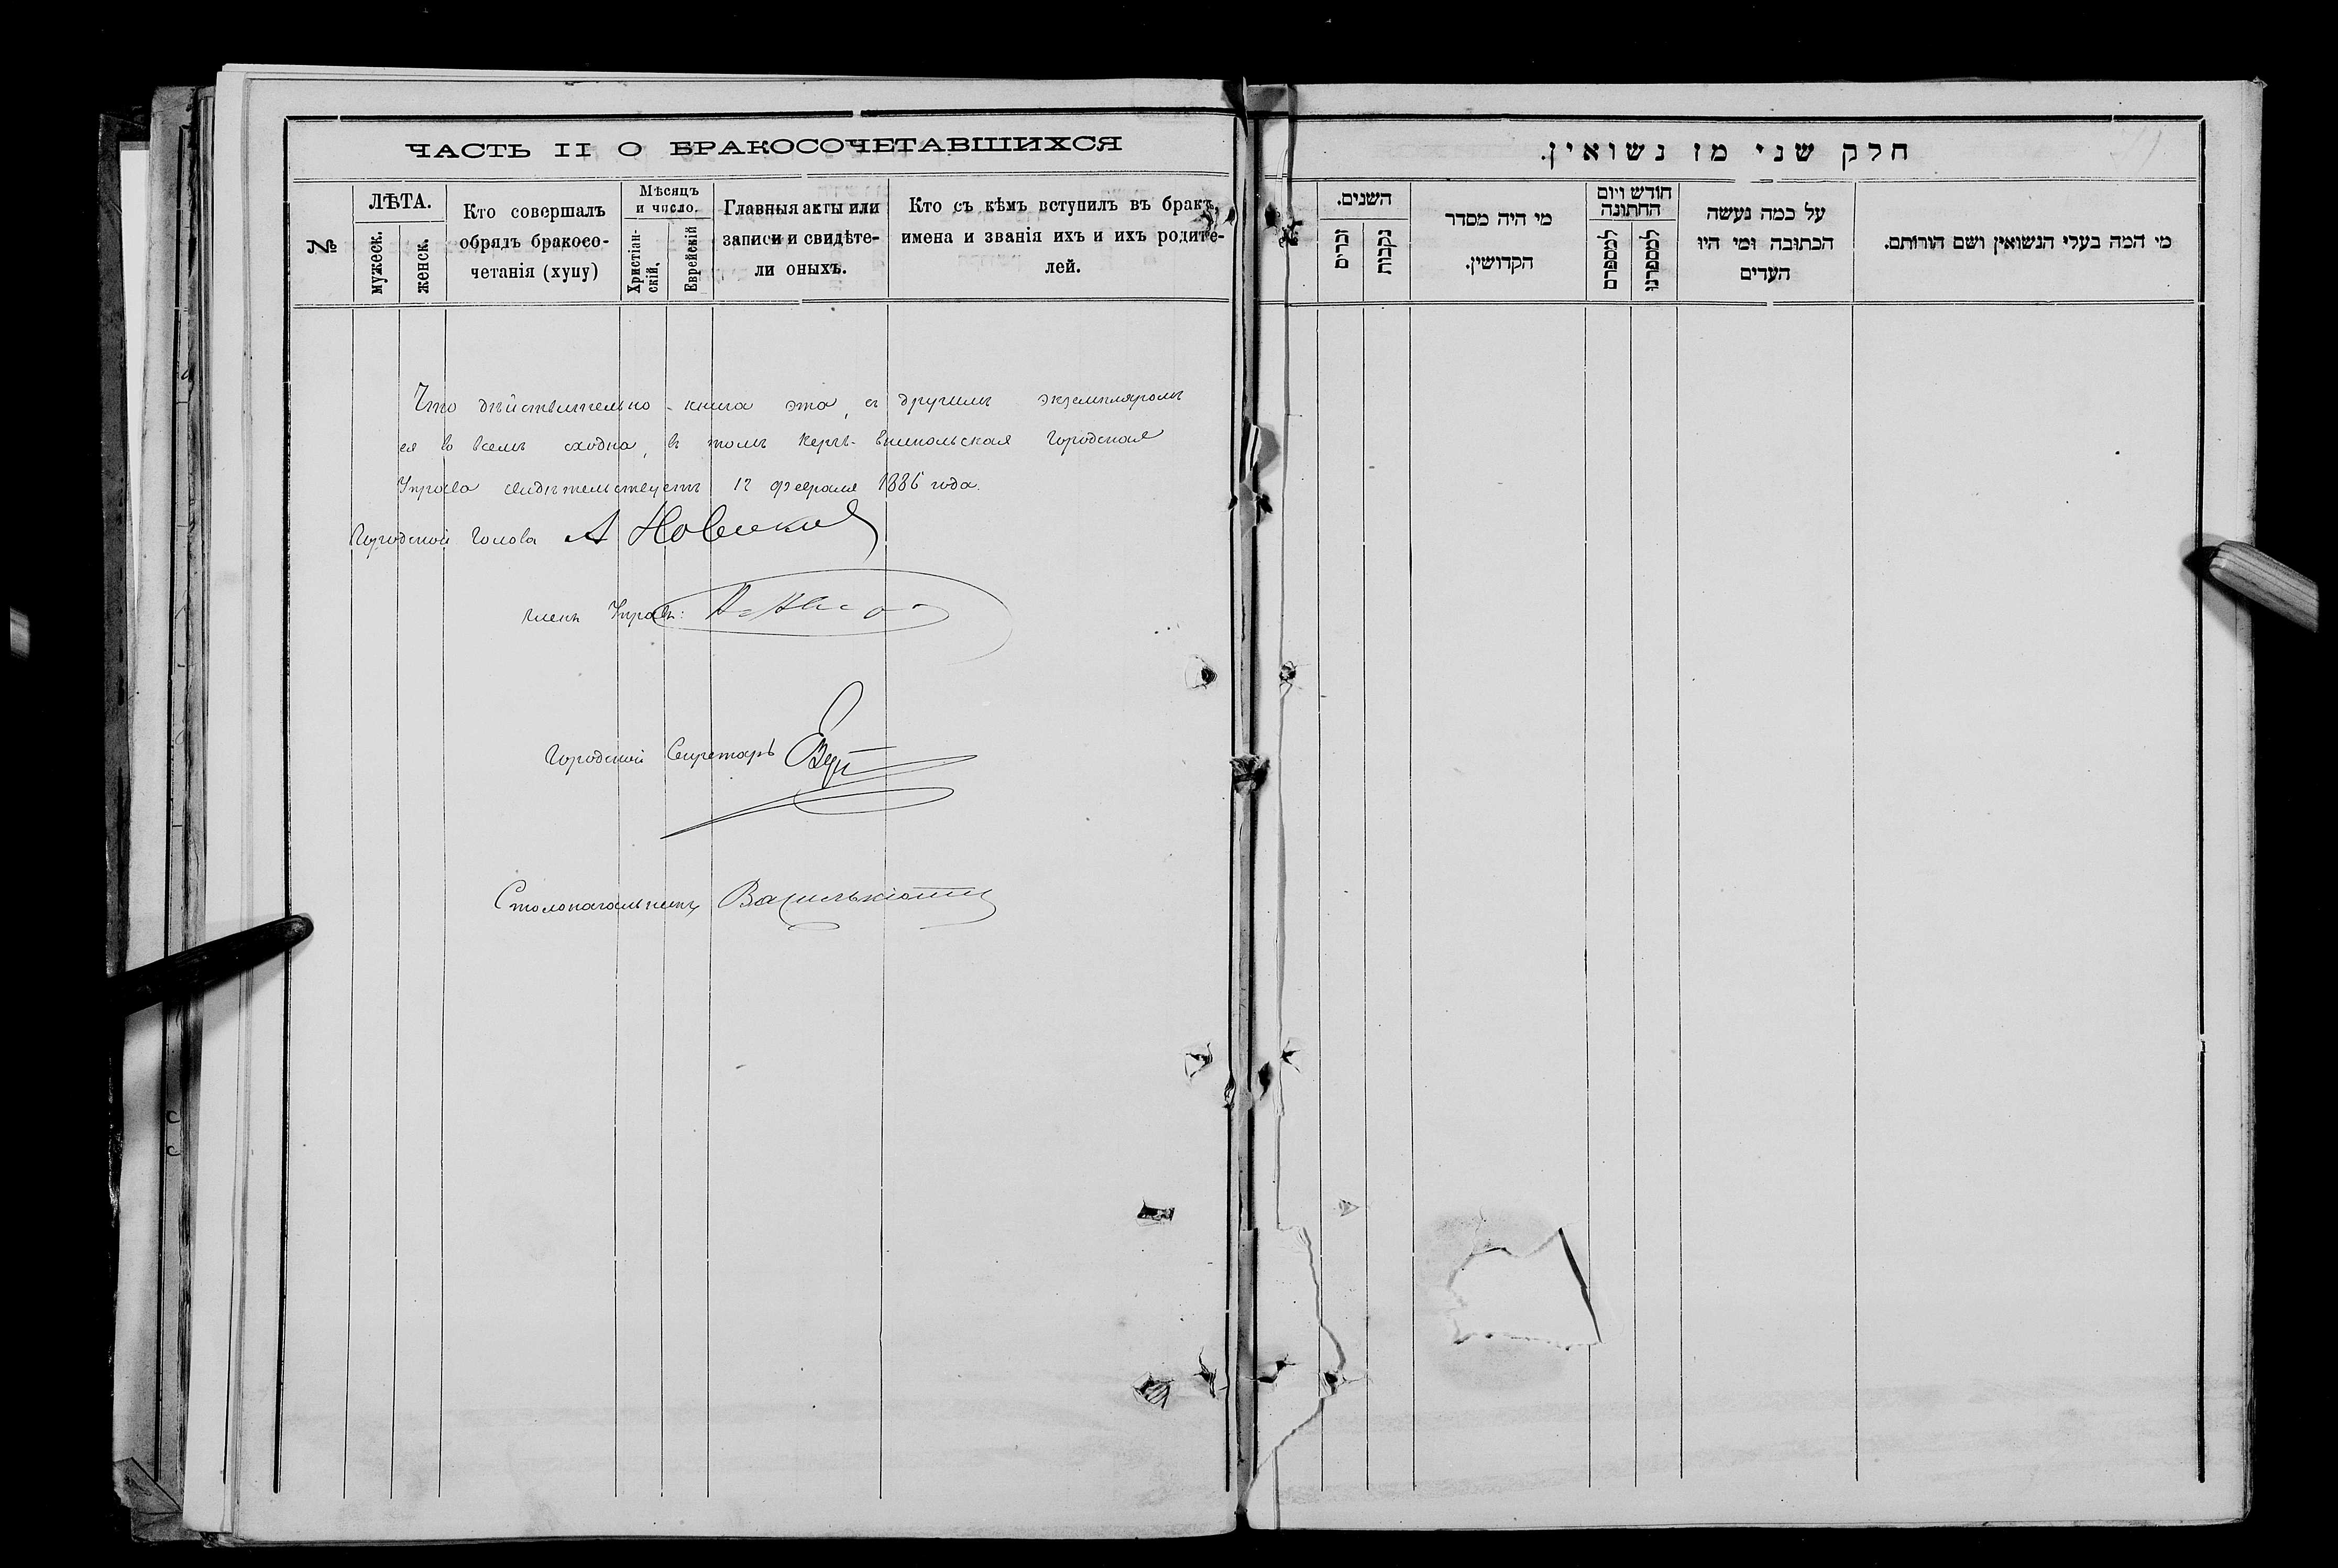 ЧАСТЬ II О БРАКОСОЧЕТАВШИХСЯ
№
ЛѢТА.
мужеск.
женск.
Кто совершалъ
обрядъ бракосо-
четанія (хупу)
Мѣсяцъ
и число.
Христіан-
скій,
Еврейскій
Главныя акты или
записи и свидѣте-
ли оныхъ.
Кто съ кѣмъ вступилъ въ бракъ,
имена и званія ихъ и ихъ родите-
лей.
Что дѣйствительно книга эта, съ другимъ экземпляромъ
ея во всемъ сходна, въ томъ Керчь-Еникольская Городская
Управа свидѣтельствуетъ 12 февраля 1886 года.
Городской Голова А Новиковъ
Членъ Управы:
Городской Секретарь
Столоначальникъ
חלק שני מז נשואין.
71
השנים.
זכרים
נקבות
מי היה מסדר
הקדושין.
חודש ויום
החתונה
למספרם
למספרנו
על כמה נעשה
הכתובה ומי היו
העדים
מי המה בעלי הנשואין ושם הורותם.